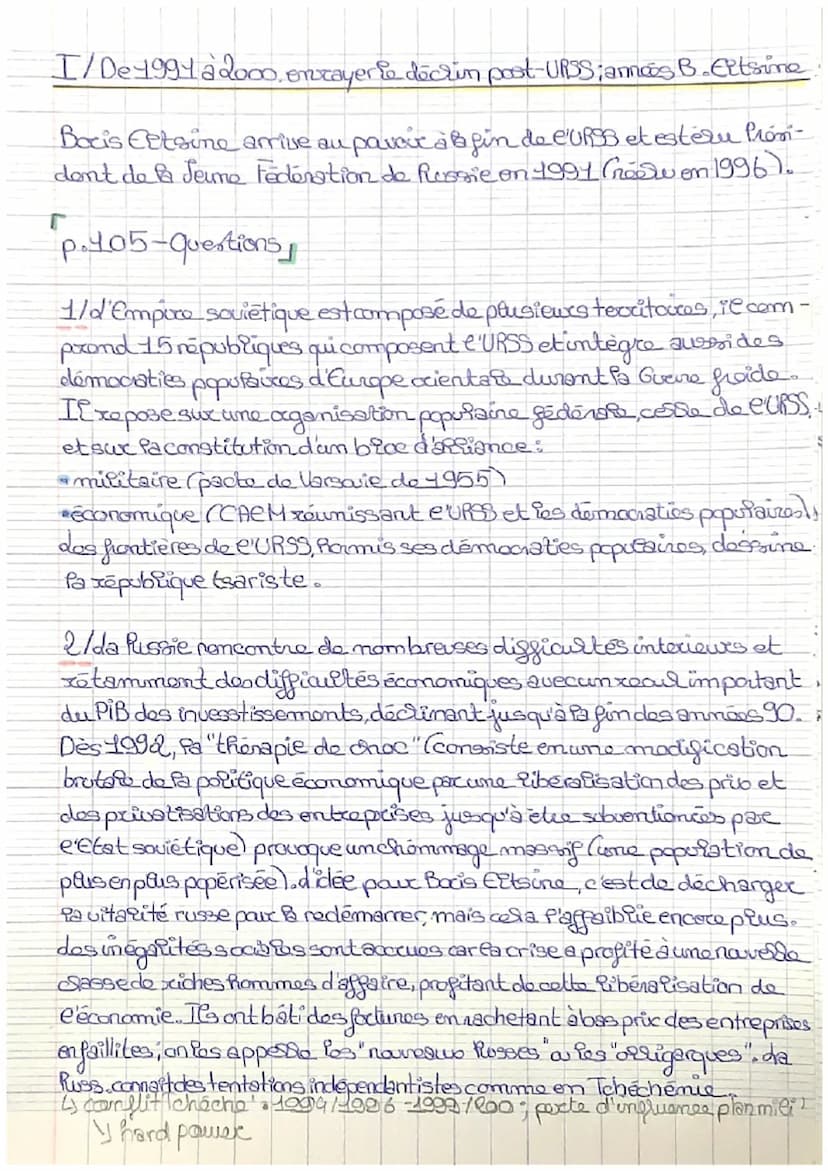 I/ De 1991 à 2000, enrayer le déclin post-URSS ; années B. Eltsine
Boris Eltsine arrive au pouvoir à la fin de l'URSS et est élu Prési-
dent de la Jeune Fédération de Russie en 1991 (réélu en 1996).
p.105 - Questions
1/ L'Empire soviétique est composé de plusieurs territoires, il com-
prend 15 républiques qui composent l'URSS et intègre aussi des
démocraties populaires d'Europe orientale durant la Guerre froide.
Il repose sur une organisation populaire fédérale, celle de l'URSS,
et sur la constitution d'un bloc d'alliance :
• militaire (pacte de Varsovie de 1955)
• économique (CAEM réunissant l'URSS et les démocraties populaires)
Les frontières de l'URSS, parmis ses démocraties populaires, dessine
la république tsariste.
2/ La Russie rencontre de nombreuses difficultés interieures et
notamment des difficultés économiques avec un recul important
du PIB des investissements, déclinant jusqu'à la fin des années 90.
Dès 1992, la "thérapie de choc" (consiste en une modification
brutale de la politique économique par une libéralisation des prix et
des privatisations des entreprises jusqu'à être subventionées par
l'Etat soviétique) provoque un chômmage massif (une population de
plus en plus popérisée). L'idée pour Boris Eltsine, c'est de décharger
la vitalité russe pour la redémarrer, mais cela l'affaiblie encore plus.
Les inégalités sociales sont accrues car la crise a profité à une nouvelle
classe de riches hommes d'affaire, profitant de cette libéralisation de
l'économie. Ils ont bâti des fortunes en rachetant à bas prix des entreprises
en faillites ; on les appelle les "nouveaux Russes" ou les "oligarques". La
Russ. connait des tentations indépendantistes comme en Tchéchénie
↳ conflit Tchéchène : 1994/1996 - 1999/200 ; perte d'influence plan mili
↳ hard power